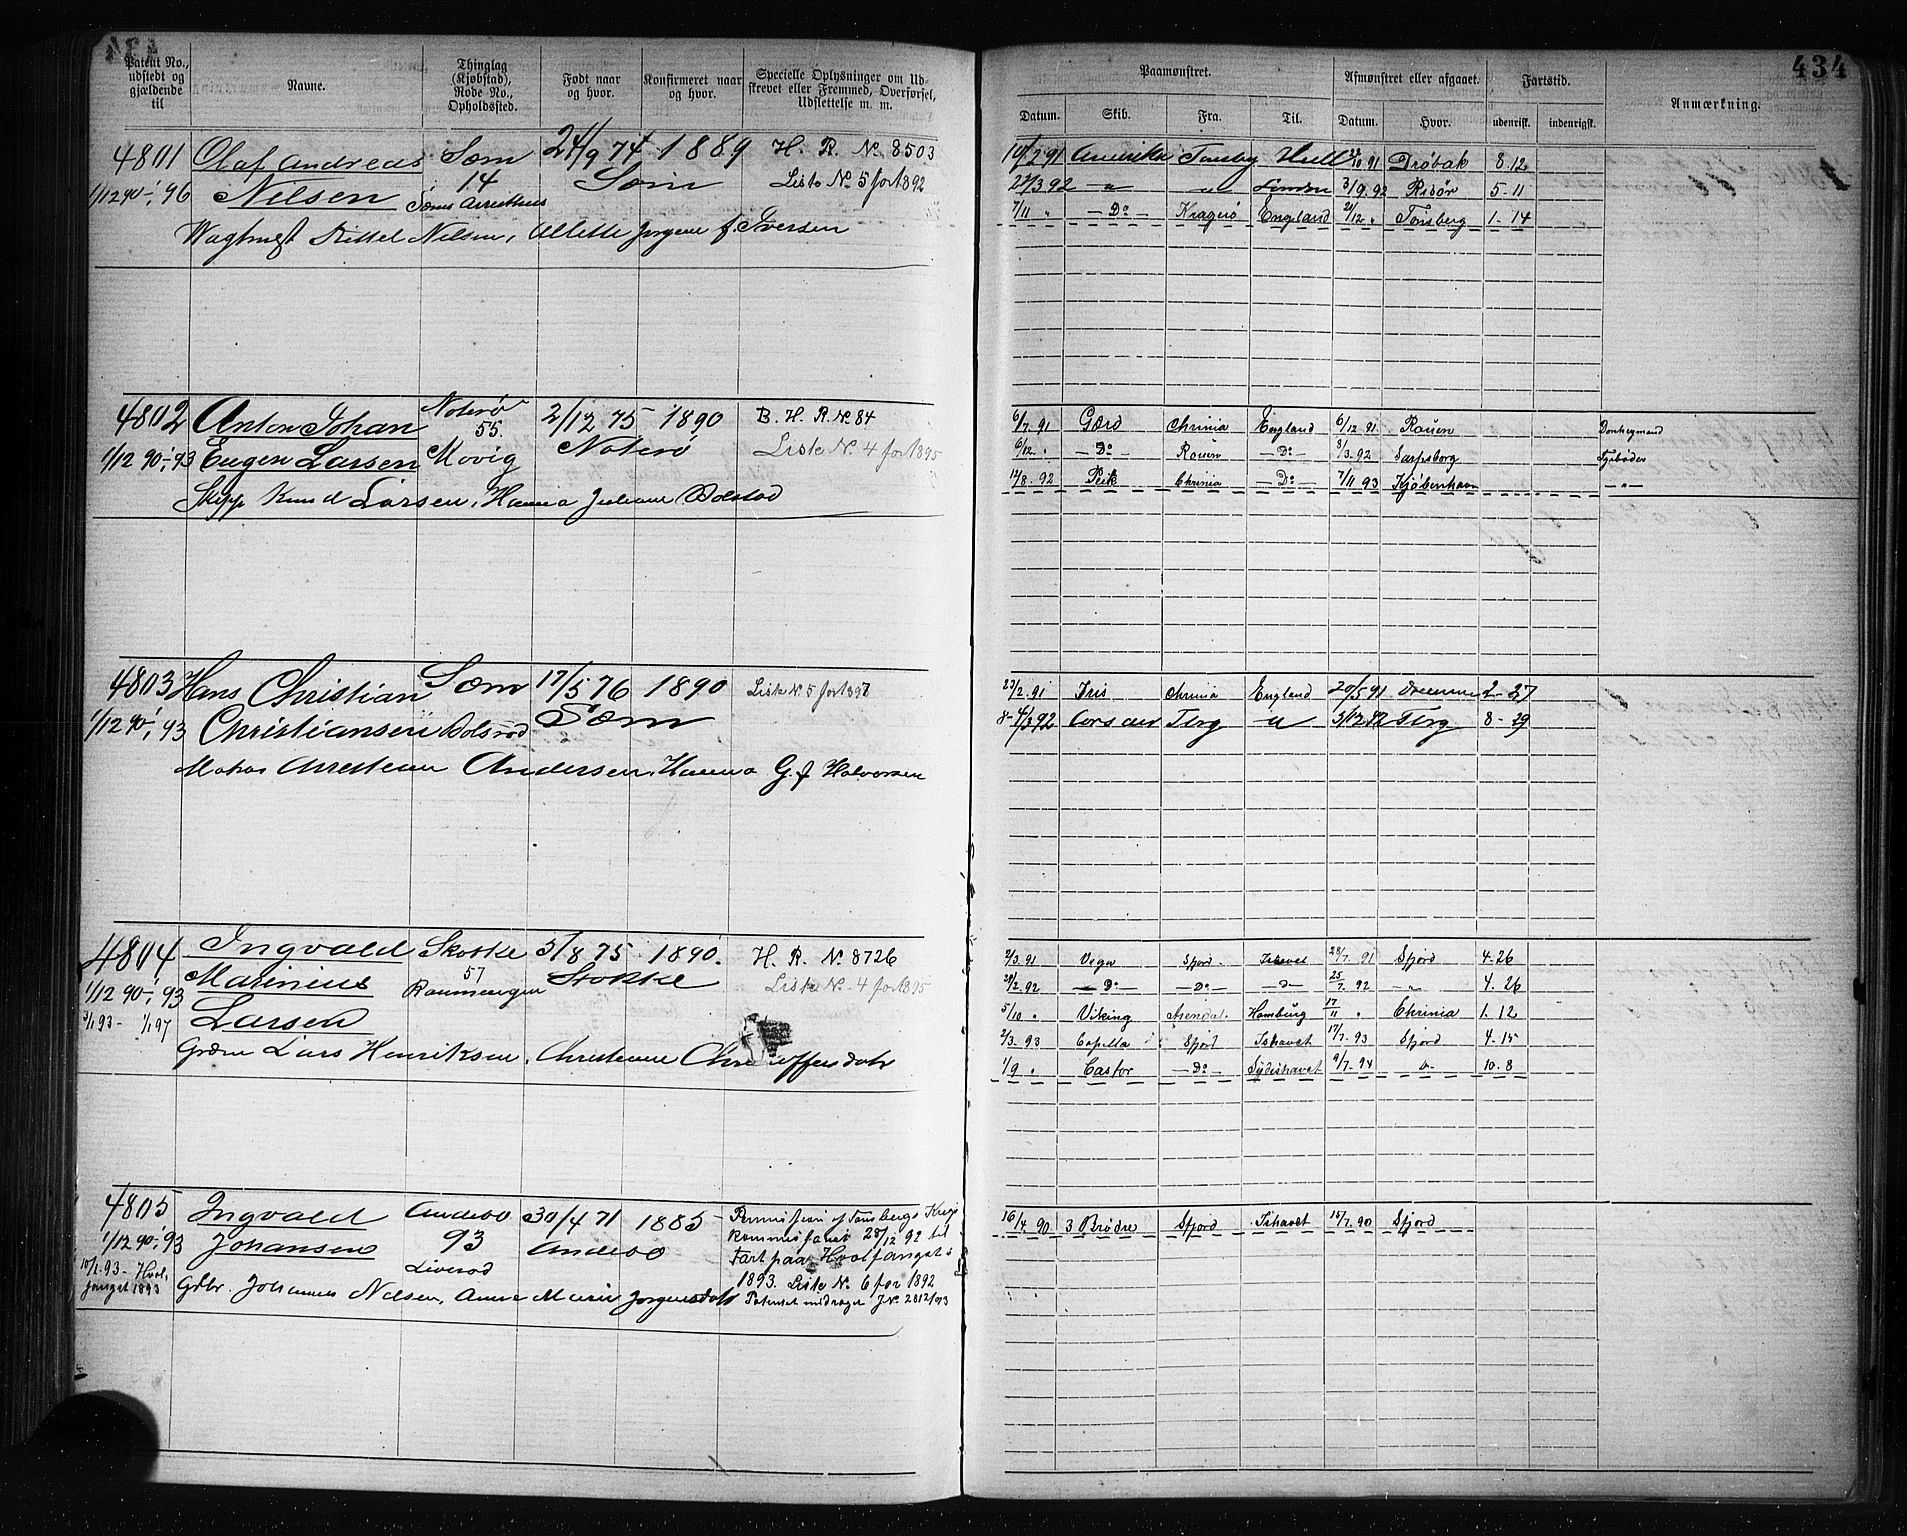 434
Patent No., udstedt og gjældende til
Navne.
Thinglag (Kjøbstad), Rode No., Opholdssted.
Født naar og hvor.
Konfirmeret naar og hvor.
Specielle Oplysninger om Udskrevet eller Fremmed, Overførsel, Udslettelse m. m.
Paamønstret.
Afmønstret eller afgaaet.
Fartstid.
Anmærkning.
Datum. Skib. Fra. Til. Datum. Hvor. udenrigsk. indenrigsk.
4801 Olaf Andreas Sæm 24/9 74 1889 H. R. No 8503
1/12 90 - 1/1 96 Nilsen 14 Sæm Liste No 5 for 1892
Nilsen, Allette Jørgine f. Iversen
19/2 91 Amerika Tønsbg Hull 10 91 Drøbak 8. 12
27/3 92 - " - " 3/9 92 Risör 5 - 11
7/11 " - Do - Kragerø England 21/12 " Tønsberg 1 - 14
4802 Anton Johan Noterö 2/12 75 1890 B. H. R. No 84
55.
1/12 90 - 1/1 93 Eugen Larsen Movig Noterö Liste No 4 for 1895
Skipp Knud Larsen, Hanna Juliane
6/7 91 Gerd Chrinia England 6/12 91 Rouen Donkeymand
6/12 " - Do - Rouen - Do - 3/3 92 Sarpsborg Fyrbøder
14/8 92 Peik Chrinia - Do - 7/11 93 Kjøbenhavn - " -
4803 Hans Christian Sæm 17/5 76 1890 Liste No 5 for 1897
1/12 90 - 1/1 93 Christiansen Sæm
Matros Andersen, Hanna G. f. Halvorsen
27/2 91 Iris Chrinia England 20/5 91 2 - 27
8 - 4/3 92 Corsar Tbrg " 3/12 92 Tbrg 8 - 29
4804 Ingvald Stokke 5/8 75 1890 H. R. No 8726
57
Marinius Stokke
1/12 90 - 1/1 93 Liste No 4 for 1895
Larsen
3/1 93 - 1/1 97
Lars Henriksen, Christiane
2/3 91 Vega Sfjord Ishavet 28/7 91 Sfjord 4 - 26
20/2 92 - Do - - Do - - " - 25/7 92 - " - 4. 26
5/10 " Viking Arendal Hamburg 17/11 " Chrinia 1. 12
2/3 93 Capella Sfjord Ishavet 17/7 93 Sfjord 4 - 15
1/9 " Castor - Do - Sydishavet 9/7 94 " 10 - 8
4805 Ingvald Andebo 30/4 71 1885
1/12 90 - 1/1 93 Johansen 93 Andebo
10/1 93 - Hvalfanget 1893
Liverød
Permission af Tønsbergs Krigskommissariat 28/12 92 til Fart paa Hvalfanget i 1893. Liste No 6 for 1892
Patentet inddraget J No 2812/93
Gdbr. Johannes Nilsen, Anne Marie Jørgensdatr
16/4 90 3 Brødre Sfjord Ishavet 15/7 90 Sfjord